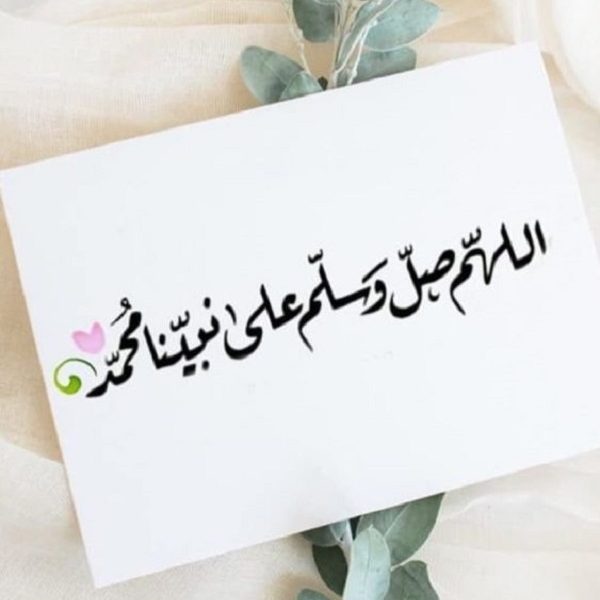 اللهمّ صلّ وَسلّم على نبيّنا محُمّد